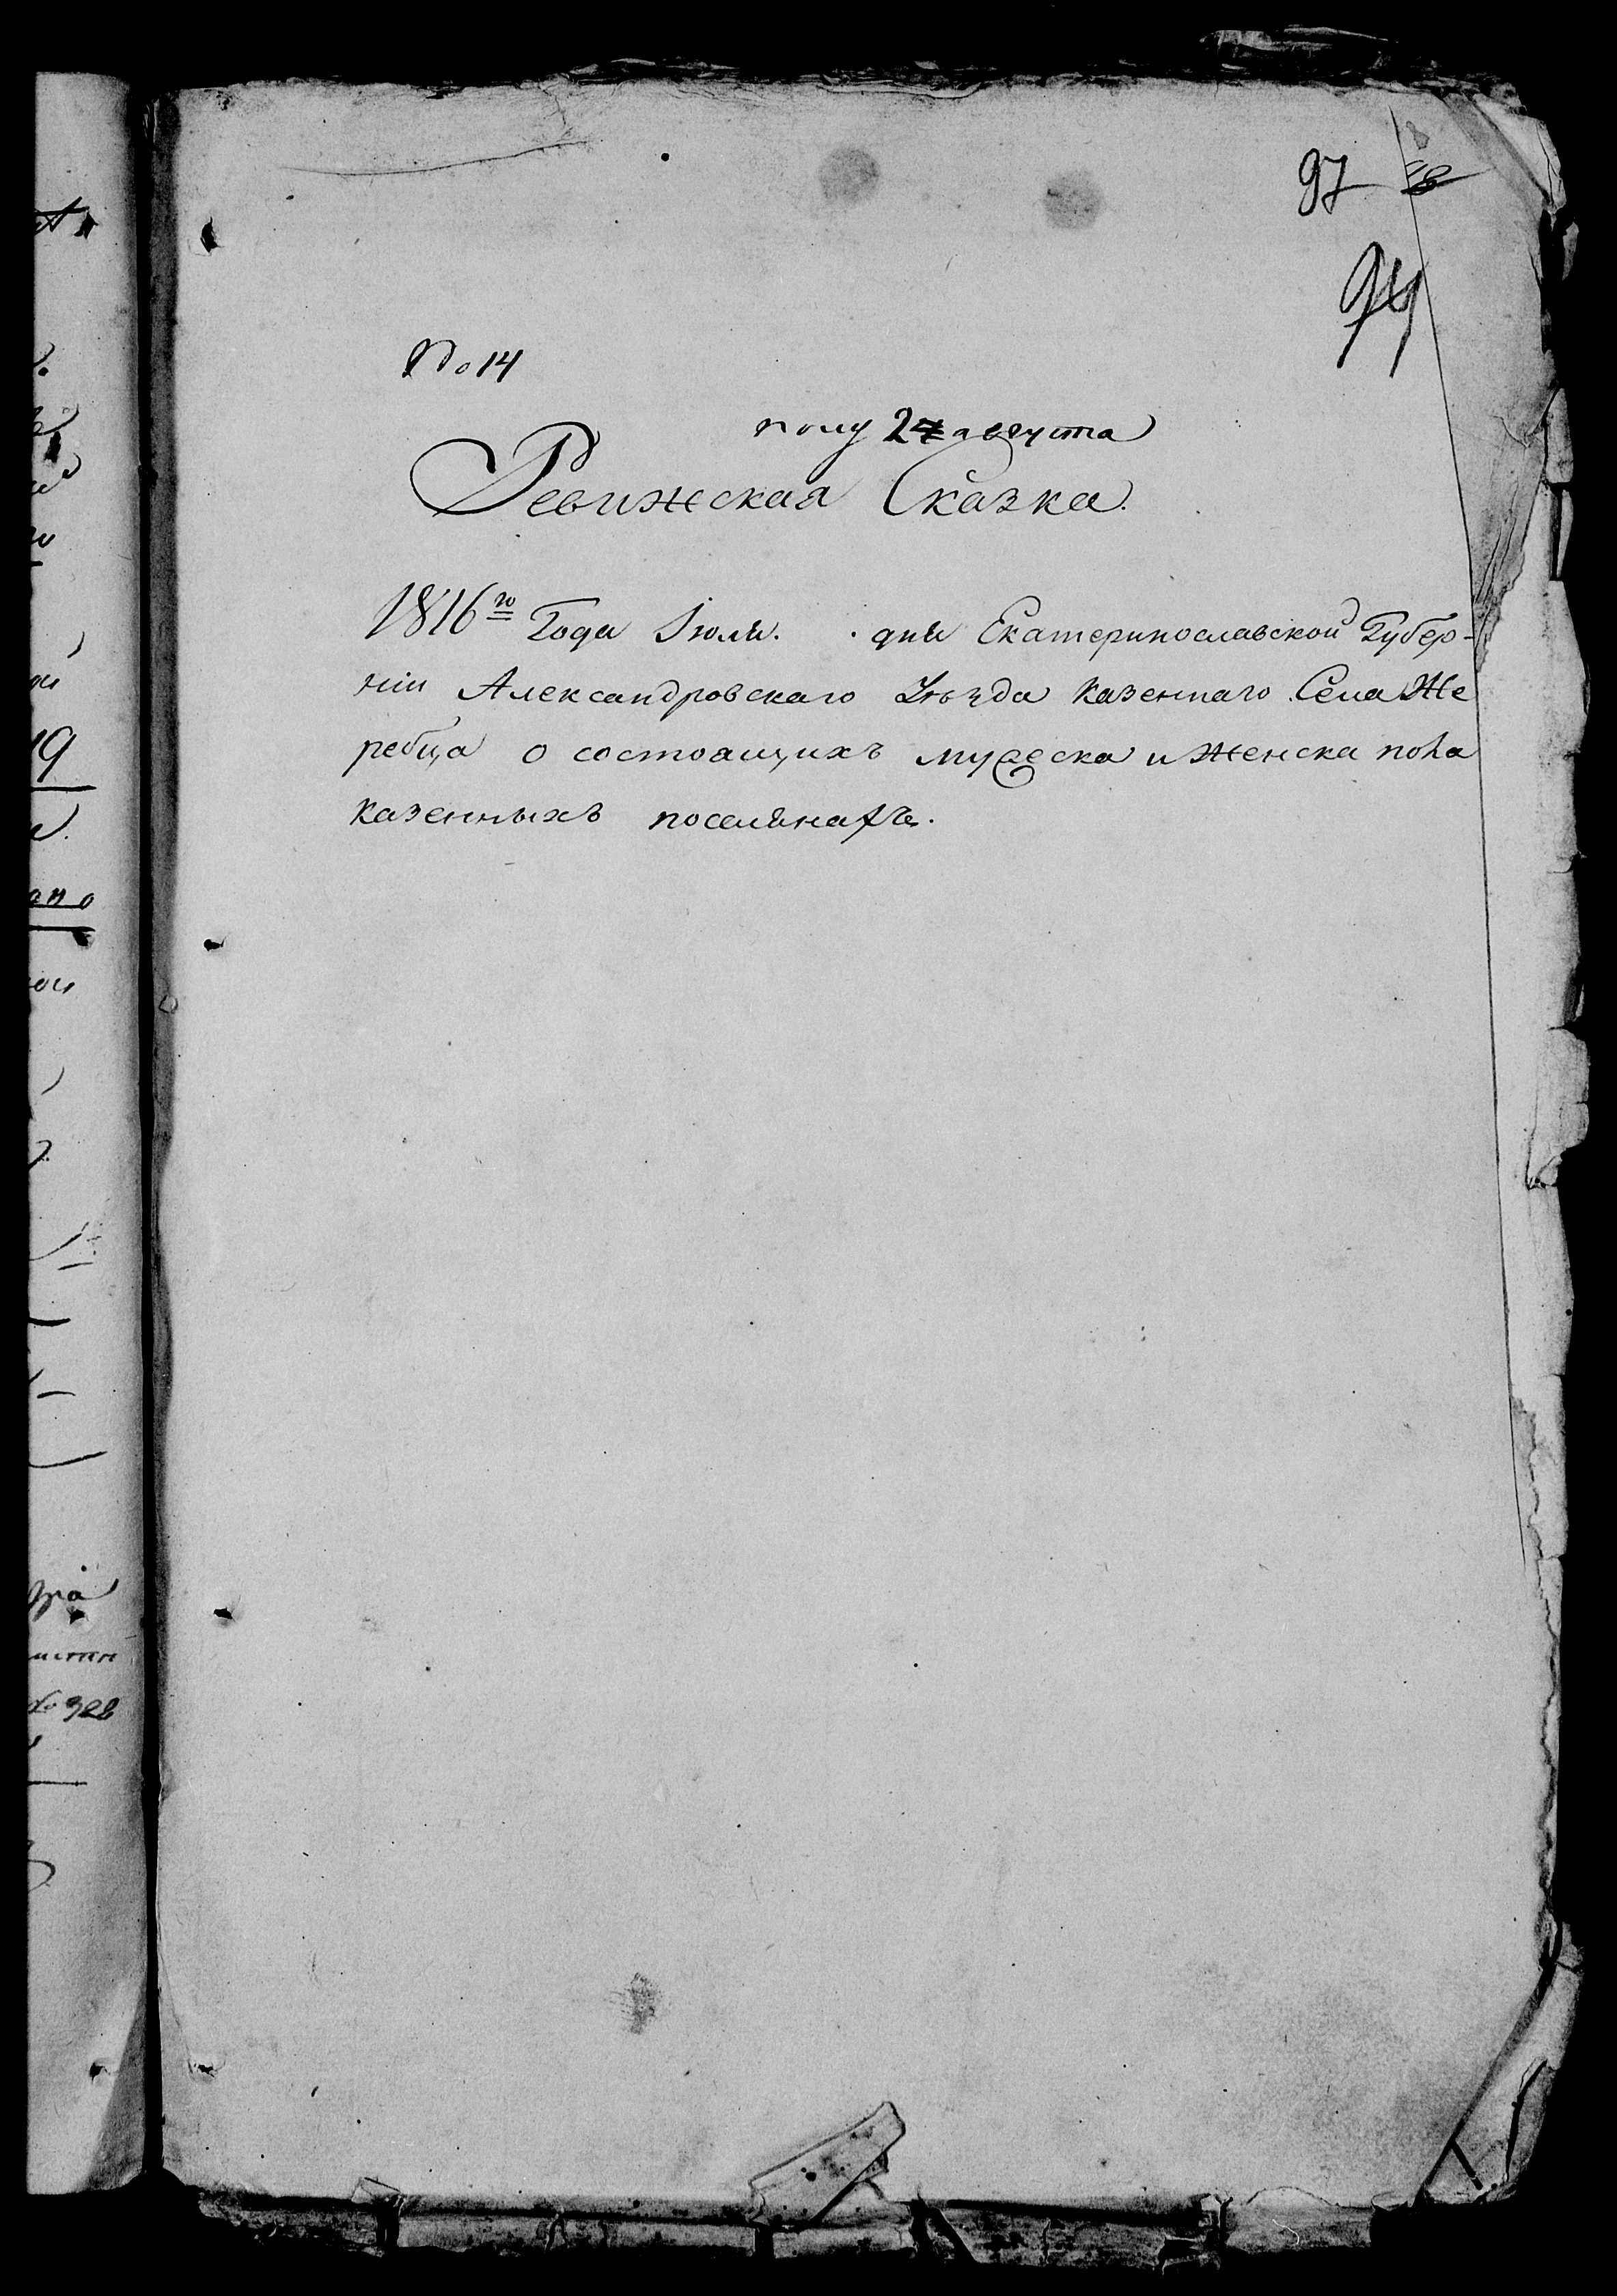 97
94
No 14
полу 27 августа
Ревижская Сказка.
1816го Года Іюля. дня Екатеринославской Губер-
ніи Александровскаго Уѣзда казеннаго Села Же
ребца о состоящихъ мужеска и Женска пола
казенныхъ поселянахъ.